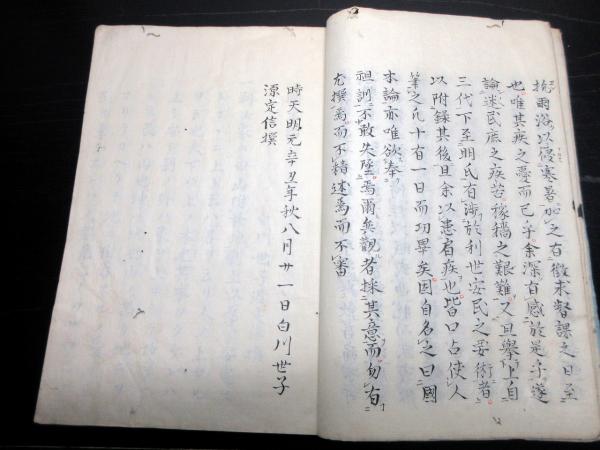 於雨浴以侵寒暑加之有徴求督課之日至
也唯其疾之憂而已乎余深有感於是乎遂
論述民庶之疾苦稼穡之艱難又且舉上自
三代下至明氏有渉於利世安民之要術者
以附録其後且余以患有疾也皆口占使人
筆之凡十有一日而功畢矣因自名之曰國
本論亦唯欲奉
祖訓不敢失墜焉爾矣觀者採其意而勿有
尤撰焉而不精述焉而不審
時天明元辛丑年秋八月廿一日白川世子
源定信撰